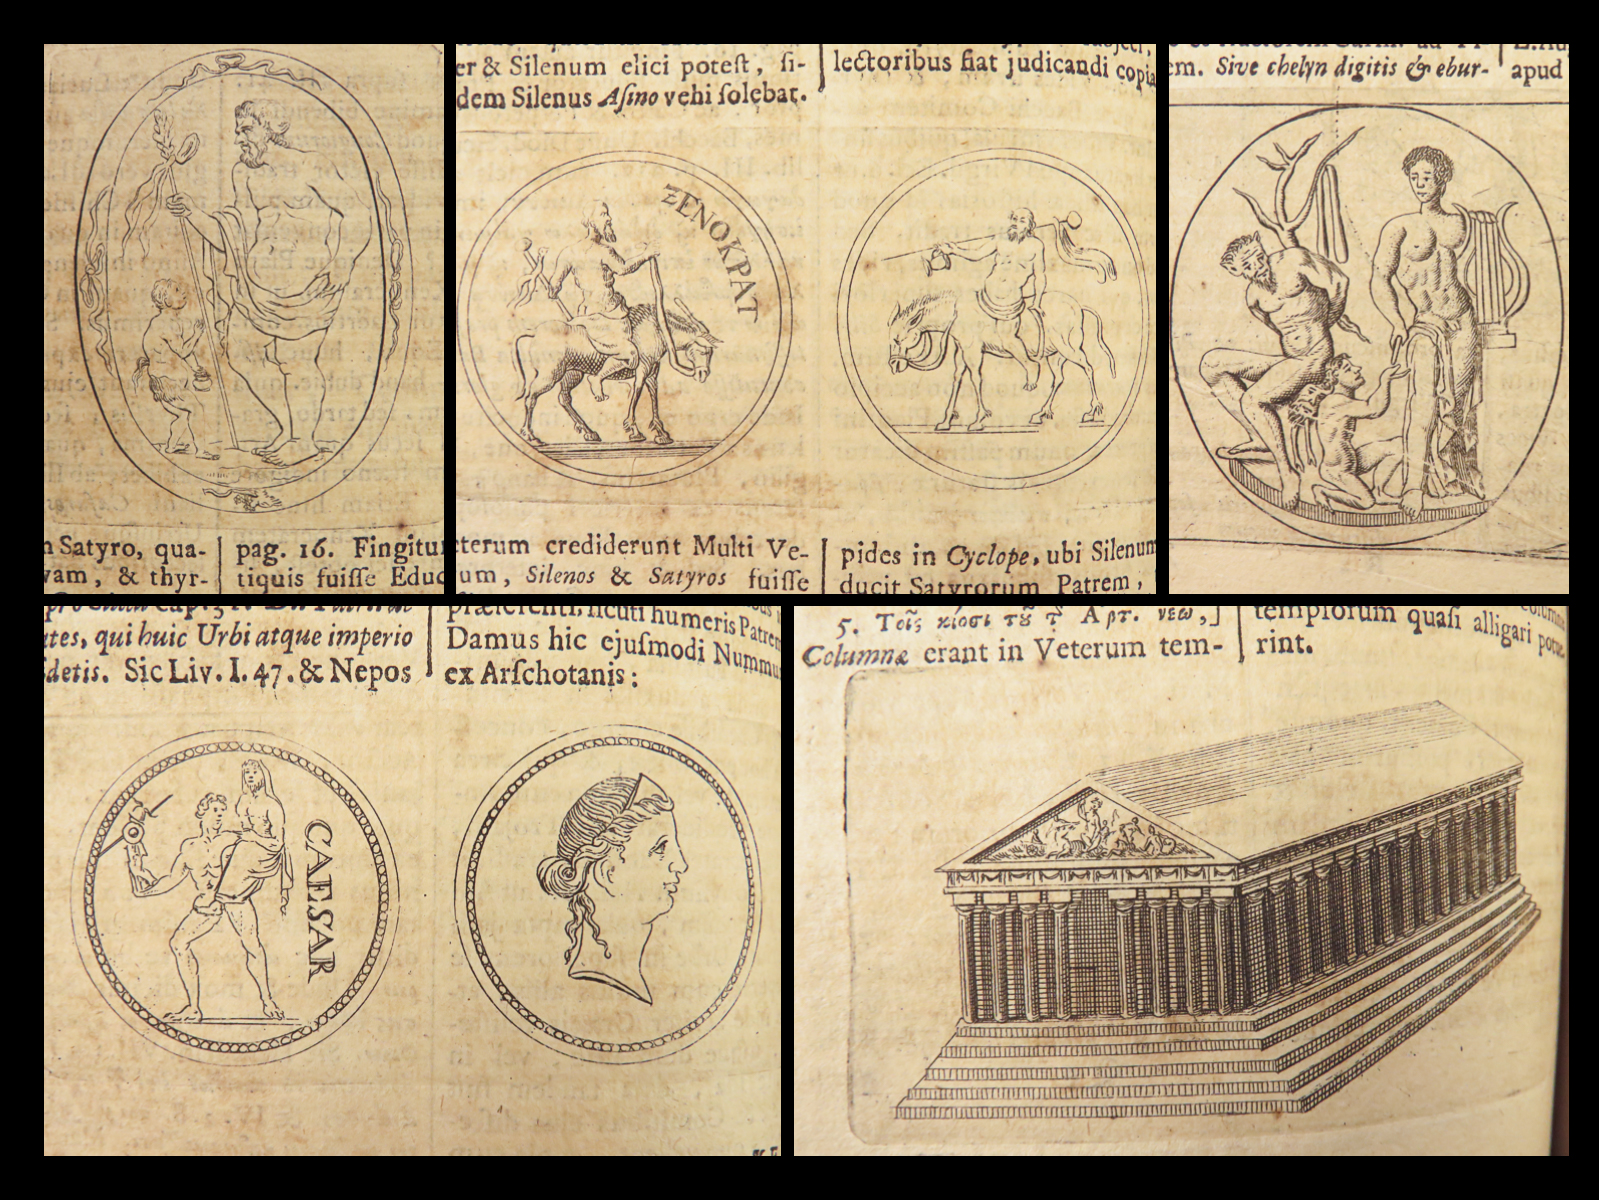 er & Silenum elici poteſt, ſi-
dem Silenus Aſino vehi ſolebat.
lectoribus fiat judicandi copia
ΞΕΝΟΚΡΑΤ
em. Sive chelyn digitis & ebur-
apud
n Satyro, qua-
vam, & thyr-
pag. 16. Fingitur
tiquis fuiſſe Educ
cterum crediderunt Multi Ve-
um, Silenos & Satyros fuiſſe
pides in Cyclope, ubi Silenum
ducit Satyrorum Patrem,
ates, qui huic Urbi atque imperio
ſidetis. Sic Liv. I. 47. & Nepos
præferenti, ſicuti humeris Patrem
Damus hic ejuſmodi Nummum
ex Arſchotanis:
CAESAR
5. Τοῖς κίοσι τȣ̃ τ͂ Αρτ. νεω,]
Columnæ erant in Veterum tem-
templorum quaſi alligari potue-
rint.